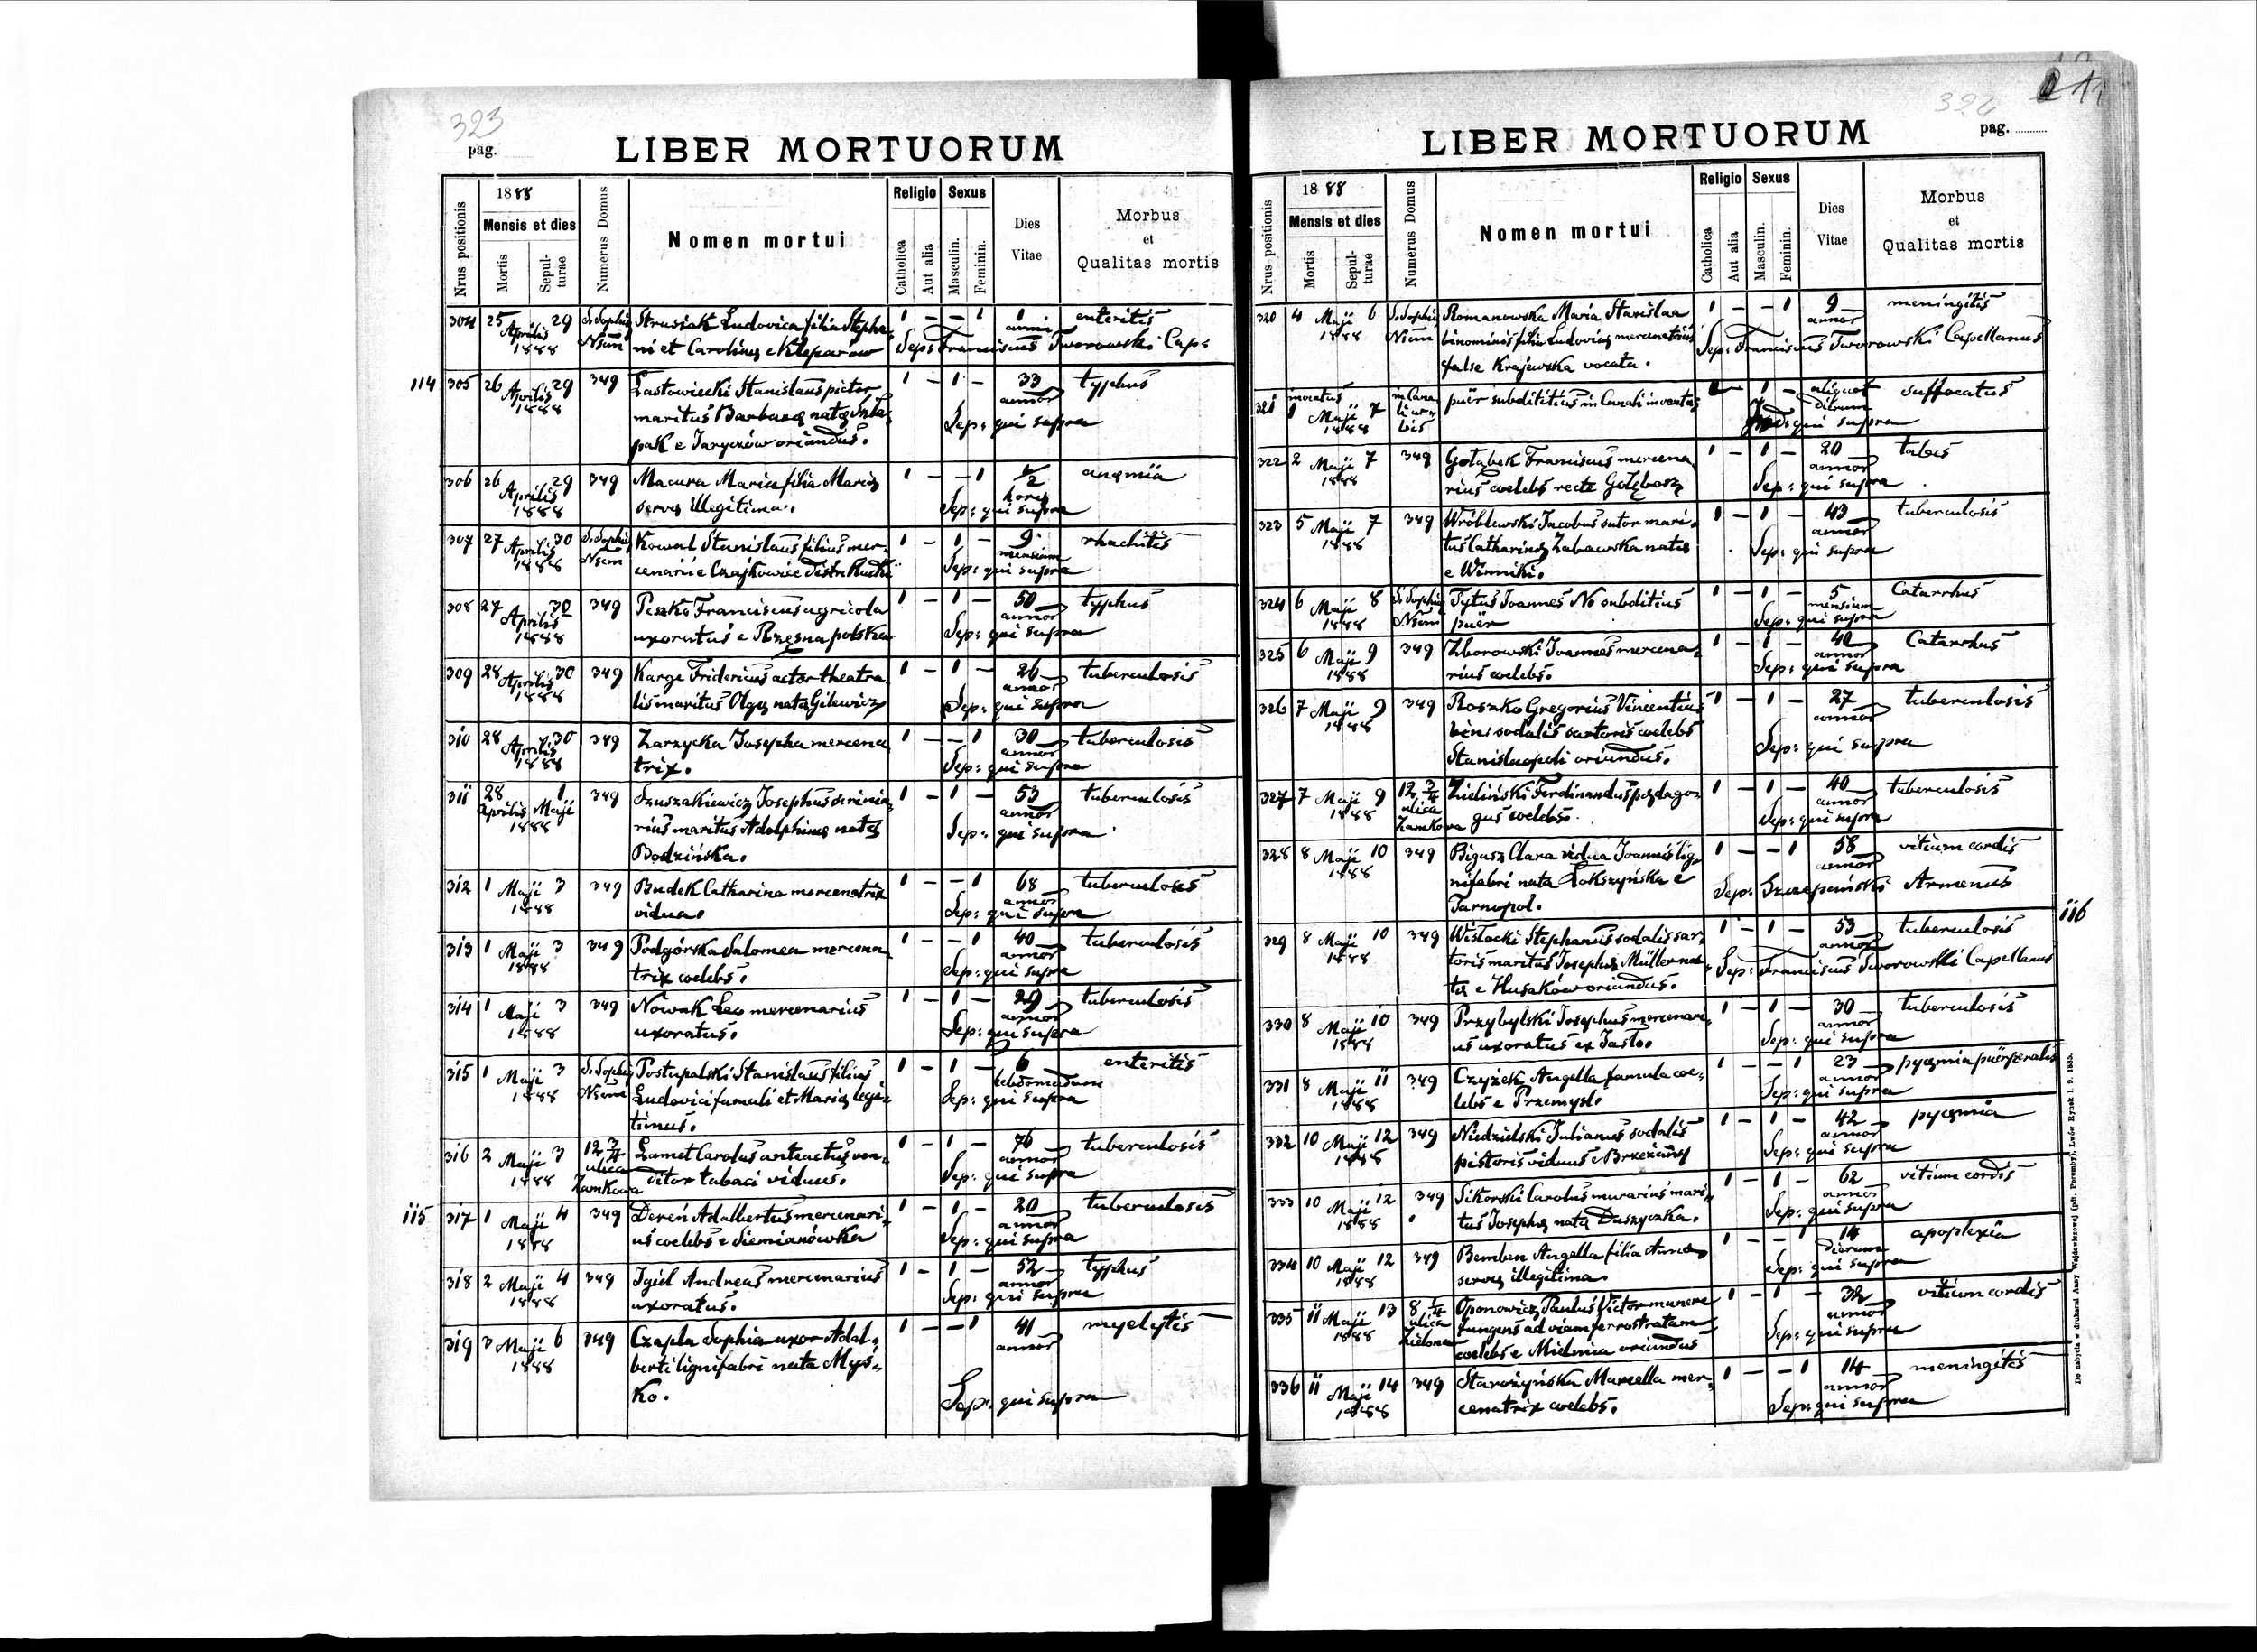 323
pag.
LIBER MORTUORUM
Nrus positionis
1888
Mensis et dies
Mortis
Sepulturae
Numerus Domus
Nomen mortui
Religio
Catholica
Aut alia
Sexus
Masculin.
Feminin.
Dies
Vitae
Morbus
et
Qualitas mortis
304 25 29 S. Sophię Strusiak Ludovica filia Stepha- 1 – – 1 1 enteritis
Aprilis 1888 Nsum ni et Carolinę e Kleparów anni
Sep: Franciscus Tworowski Cap:
114 305 26 29 349 Łastowiecki Stanislaus pictor 1 – 1 – 33 typhus
Aprilis 1888 maritus Barbarę natę annor
pak e Jaryczów oriundus. Sep: qui supra
306 26 29 349 Macura Maria filia Marię 1 – – 1 1/2 anęmia
Aprilis 1888 servę illegitima. horę
Sep: qui supra
307 27 30 S. Sophię Kowal Stanislaus filius mer- 1 – 1 – 9 rhachitis
Aprilis 1888 Nsum cenarii e Czajkowice distr. Rudki mensium
Sep: qui supra
308 27 30 349 Peszko Franciscus agricola 1 – 1 – 50 typhus
Aprilis 1888 uxoratus e Rzęsna polska annor
Sep: qui supra
309 28 30 349 Karge Fridericus actor theatra- 1 – 1 – 26 tuberculosis
Aprilis 1888 lis maritus Olgę natę Gilewicz annor
Sep: qui supra
310 28 30 349 Zarzycka Josepha mercena 1 – – 1 30 tuberculosis
Aprilis 1888 trix. annor
Sep: qui supra
311 28 1 349 Szuszakiewicz Josephus scrinia- 1 – 1 – 53 tuberculosis
Aprilis Maji 1888 rius maritus Adolphinę natę annor
Bodzińska. Sep: qui supra
312 1 Maji 3 349 Budek Catharina mercenatrix 1 – – 1 68 tuberculosis
1888 vidua. annor
Sep: qui supra
313 1 Maji 3 349 Podgórska Salomea mercena 1 – – 1 40 tuberculosis
1888 trix coelebs. annor
Sep: qui supra
314 1 Maji 3 349 Nowak Leo mercenarius 1 – 1 – 29 tuberculosis
1888 uxoratus. annor
Sep: qui supra
315 1 Maji 3 S. Sophię Postupalski Stanislaus filius 1 – 1 – 6 enteritis
1888 Nsum Ludovici famuli et Marię legi- hebdomadum
timus. Sep: qui supra
316 2 Maji 3 12 3/4 Lamet Carolus anteactus ven- 1 – 1 – 76 tuberculosis
1888 ulica Zamkowa ditor tabaci viduus. annor
Sep: qui supra
115 317 1 Maji 4 349 Dereń Adalbertus mercenari- 1 – 1 – 20 tuberculosis
1888 us coelebs e Siemianówka annor
Sep: qui supra
318 2 Maji 4 349 Igiel Andreas mercenarius 1 – 1 – 52 typhus
1888 uxoratus. annor
Sep: qui supra
319 3 Maji 6 349 Czapla Sophia uxor Adal- 1 – – 1 41 myelytis
1888 berti lignifabri nata Myś- annor
ko. Sep: qui supra
324
pag.
LIBER MORTUORUM
Nrus positionis
1888
Mensis et dies
Mortis
Sepulturae
Numerus Domus
Nomen mortui
Religio
Catholica
Aut alia
Sexus
Masculin.
Feminin.
Dies
Vitae
Morbus
et
Qualitas mortis
320 4 Maji 6 S. Sophię Romanowska Maria Stanislaa 1 – – 1 9 meningitis
1888 Nsum binominis filia Ludovicę mercenatricis annor
false Krajewska vocata. Sep: Franciscus Tworowski Capellanus
321 1 Maji 7 in Canali urbis puer subdititius in Canali inventus 1 – 1 – aliquot suffocatus
1888 dierum
qui supra
322 2 Maji 7 349 Gołąbek Franciscus mercena 1 – 1 – 20 tabes
1888 rius coelebs recte Gołębosz annor
Sep: qui supra
323 5 Maji 7 349 Wróblewski Jacobus sutor mari- 1 – 1 – 43 tuberculosis
1888 tus Catharinę Zabawska natę annor
e Winniki. Sep: qui supra
324 6 Maji 8 S. Sophię Tytus Joannes No subditius 1 – 1 – 5 Catarrhus
1888 Nsum puer mensium
Sep: qui supra
325 6 Maji 9 349 Zborowski Joannes mercena- 1 – 1 – 40 Catarrhus
1888 rius coelebs. annor
Sep: qui supra
326 7 Maji 9 349 Roszko Gregorius Vincentius 1 – 1 – 27 tuberculosis
1888 bini sodalis sartoris coelebs annor
Stanislaopoli oriundus. Sep: qui supra
327 7 Maji 9 12 3/4 Zieliński Ferdinandus pędago- 1 – 1 – 40 tuberculosis
1888 ulica Zamkowa gus coelebs. annor
Sep: qui supra
328 8 Maji 10 349 Bigusz Clara vidua Joannis lig- 1 – – 1 58 vitium cordis
1888 nifabri nata Łokszyńska e annor
Tarnopol. Sep: Szczepański Armenus
116
329 8 Maji 10 349 Wisłocki Stephanus sodalis sar- 1 – 1 – 53 tuberculosis
1888 toris maritus Josephę Müller na- annor
tę e Husaków oriundus. Sep: Franciscus Tworowski Capellanus
330 8 Maji 10 349 Przybylski Josephus mercenari- 1 – 1 – 30 tuberculosis
1888 us uxoratus ex Jasło. annor
Sep: qui supra
331 8 Maji 11 349 Czyżek Angella famula coe- 1 – – 1 23 pyęmia püerperalis
1888 lebs e Przemysl. annor
Sep: qui supra
332 10 Maji 12 349 Niedzielski Julianus sodalis 1 – 1 – 42 pyęmia
1888 pistoris viduus e Brzeżany annor
Sep: qui supra
333 10 Maji 12 349 Sikorski Carolus murarius mari- 1 – 1 – 62 vitium cordis
1888 tus Josephę natę Duszyczka. annor
Sep: qui supra
334 10 Maji 12 349 Bemben Angella filia Annę 1 – – 1 14 apoplexia
1888 servę illegitima dierum
Sep: qui supra
335 11 Maji 13 8 1/4 Oponowicz Paulus Victor munere 1 – 1 – 32 vitium cordis
1888 ulica Zielona fungens ad viam ferrostratam annor
coelebs e Mielnica oriundus Sep: qui supra
336 11 Maji 14 349 Starożyńska Marcella mer- 1 – – 1 14 meningitis
1888 cenatrix coelebs. annor
Sep: qui supra
Do nabycia w drukarni Anny Wajdowiczowej (pdt. Poremby), Lwów Rynek l. 9. 1885.